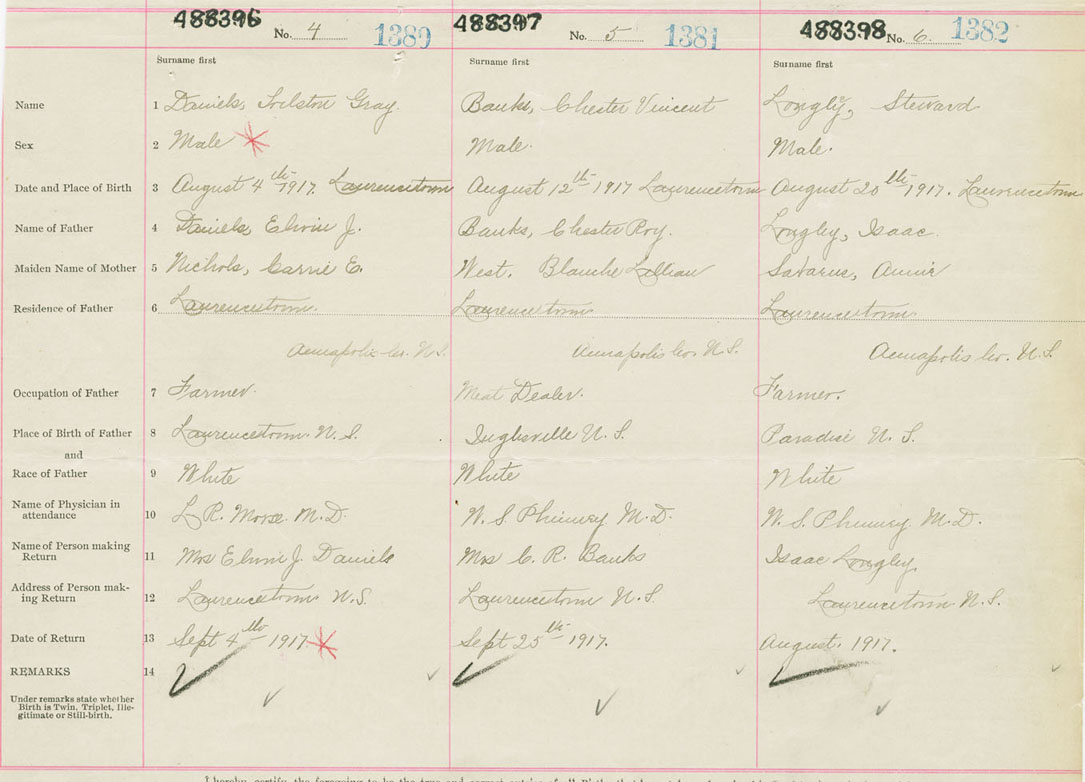 488396 No. 4 1380 488397 No. 5 1381 488398 No. 6. 1382
Surname first Surname first Surname first
Name 1 Daniels, Gray. Banks, Chester Vincent Longley, Steward
Sex 2 Male Male. Male.
Date and Place of Birth 3 August 4th 1917. Laurencetown August 12th 1917 Laurencetown August 20th 1917. Laurencetown
Name of Father 4 Daniels, Elwin J. Banks, Chester Roy. Longley, Isaac.
Maiden Name of Mother 5 Nichols, Carrie E. West. Blanche Lillian Annie
Residence of Father 6 Laurencetown. Laurencetown Laurencetown.
Annapolis Co. N.S. Annapolis Co. N.S. Annapolis Co. N.S.
Occupation of Father 7 Farmer. Meat Dealer. Farmer.
Place of Birth of Father 8 Laurencetown. N.S. Inglisville N.S. Paradise N.S.
and
Race of Father 9 White White White
Name of Physician in
attendance 10 L R. Morse M.D. W. S Phinney M.D. W. S. Phinney M.D.
Name of Person making
Return 11 Mrs Elwin J. Daniels Mrs C. R. Banks Isaac Longley
Address of Person mak-
ing Return 12 Laurencetown N.S. Laurencetown N.S. Laurencetown N.S.
Date of Return 13 Sept 4th 1917. Sept 25th 1917. August. 1917.
REMARKS 14
Under remarks state whether
Birth is Twin, Triplet, Ille-
gitimate or Still-birth.